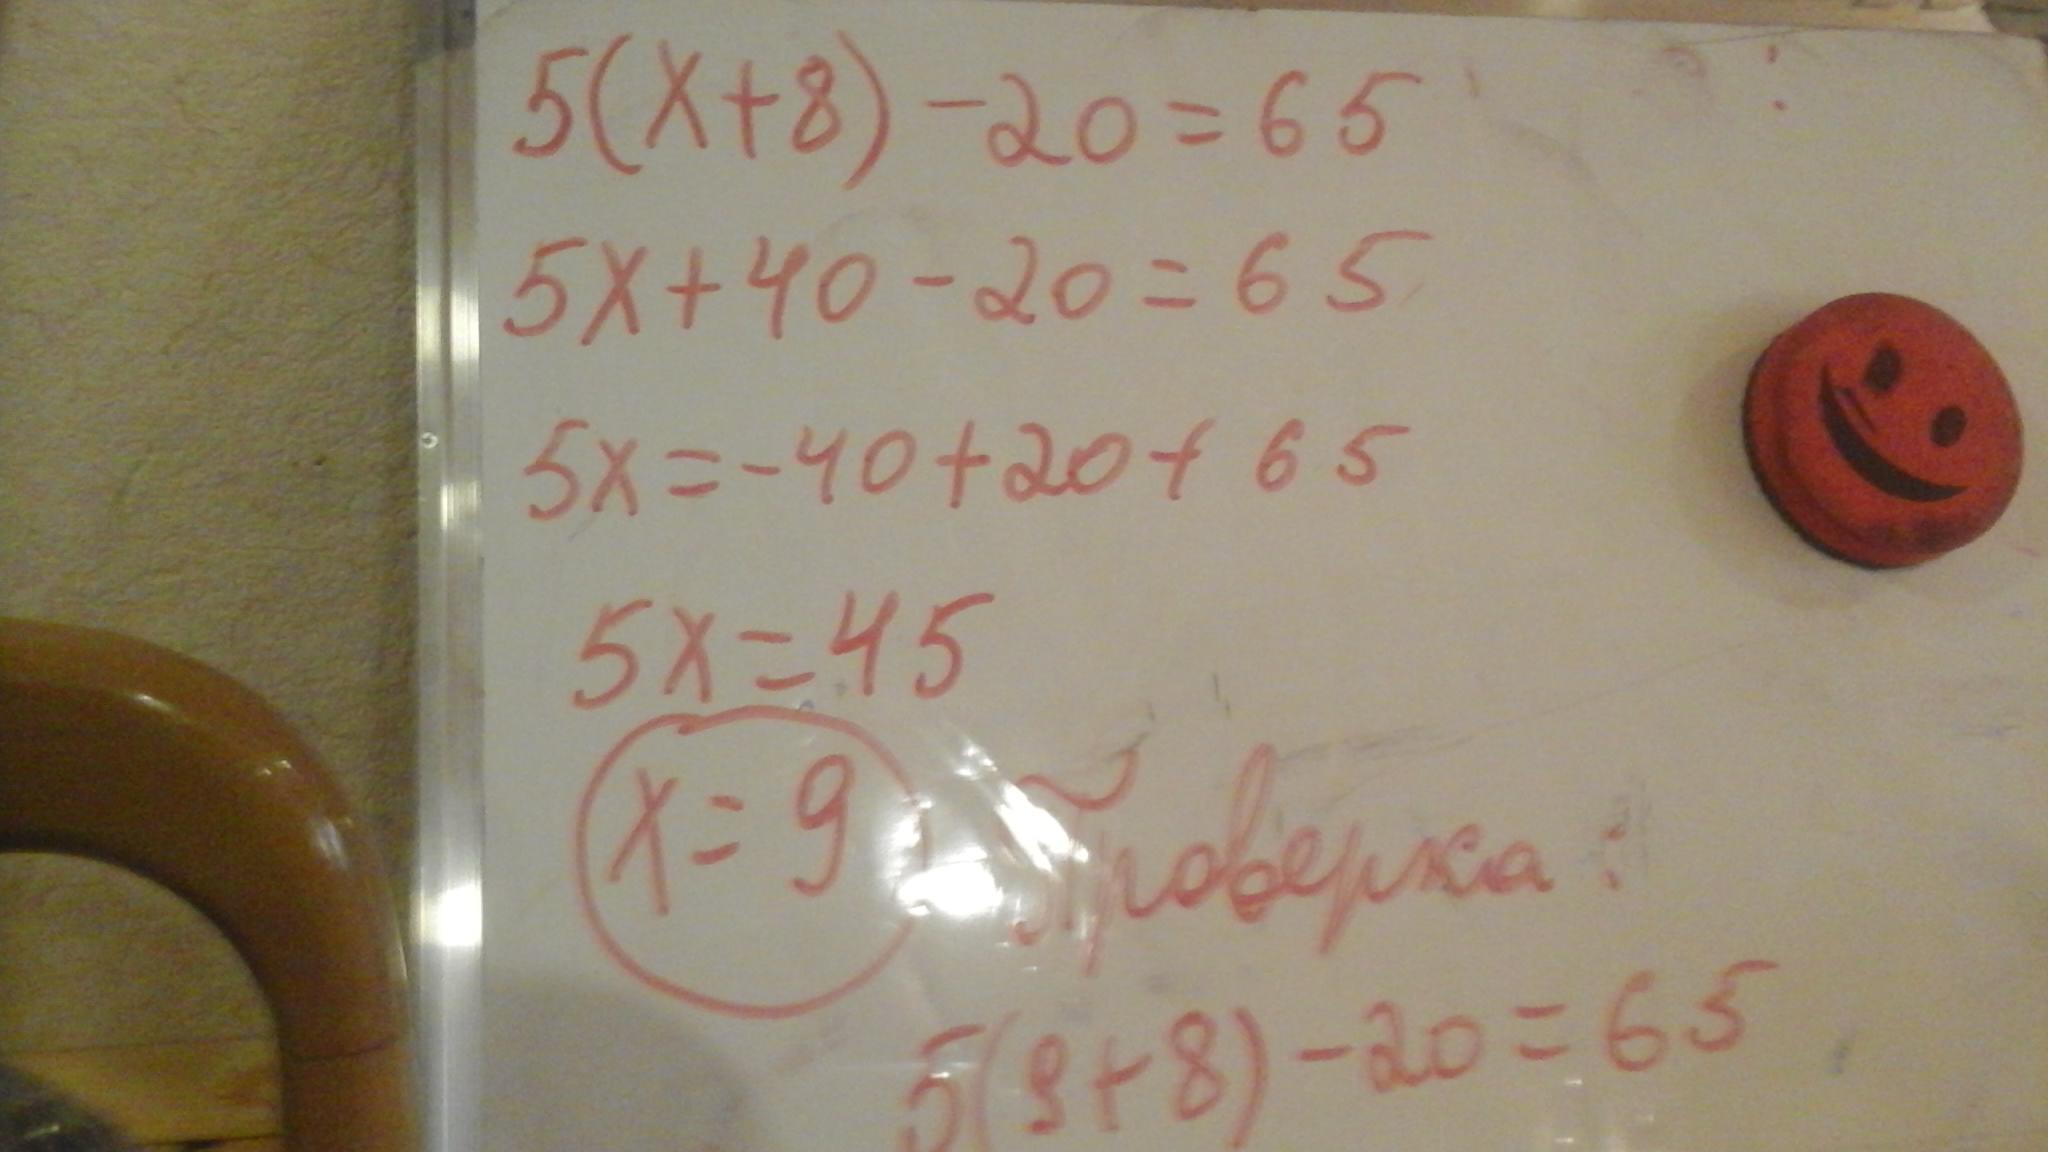 5(x+8)-20=65
5x+40-20=65
5x=-40+20+65
5x=45
x=9
Проверка:
5(9+8)-20=65